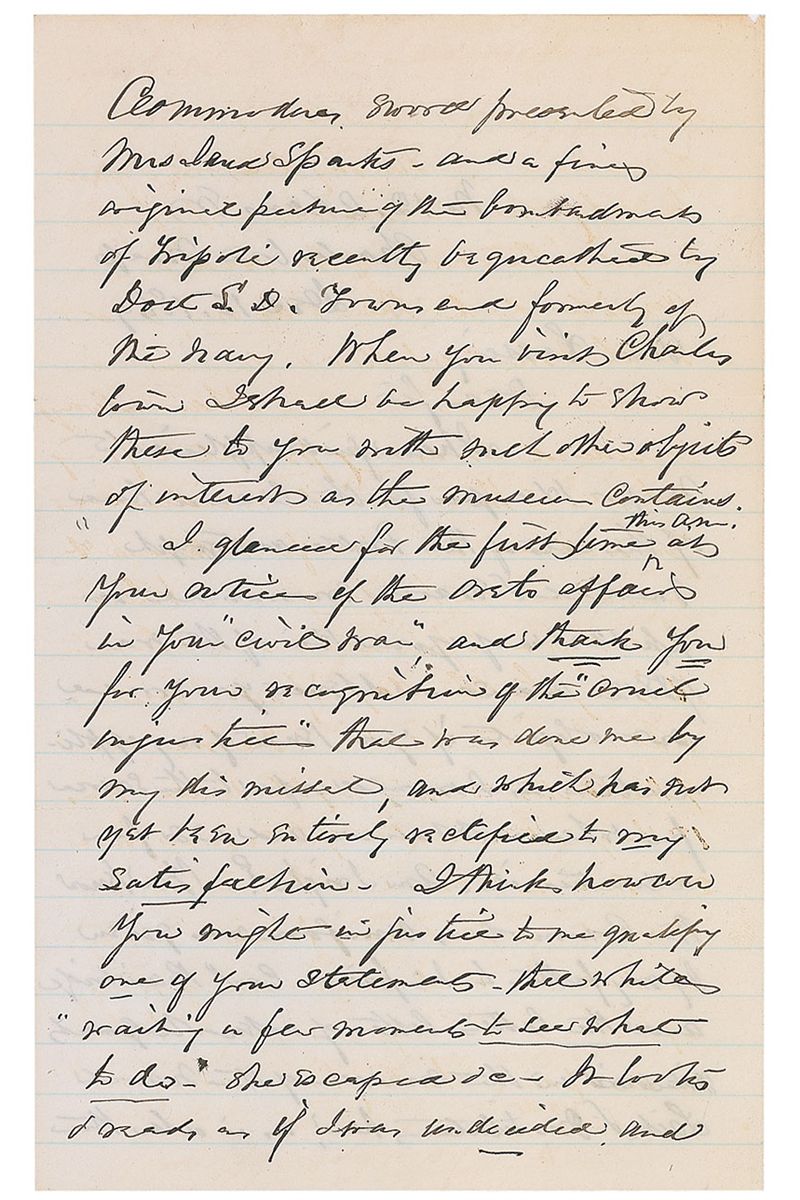 Commodores sword presented by
Mrs Sparks - and a fine
original picture of the bombardment
of Tripoli recently bequeathed by
Doct S. D. Townsend formerly of
the navy. When you visit Charles
town I shall be happy to show
these to you with such other objects
of interest as the museum contains.
this a.m.
I glanced for the first time at
your notice of the Oreto affair
in your "civil war", and thank you
for your recognition of the "cruel
injustice" that was done me by
my dismissal, and which has not
yet been entirely rectified to my
satisfaction - I think however
you might in justice to me qualify
one of your statements - that while
"waiting a few moments to see what
to do - " she escaped &c - It looks
& reads as if I was undecided, and